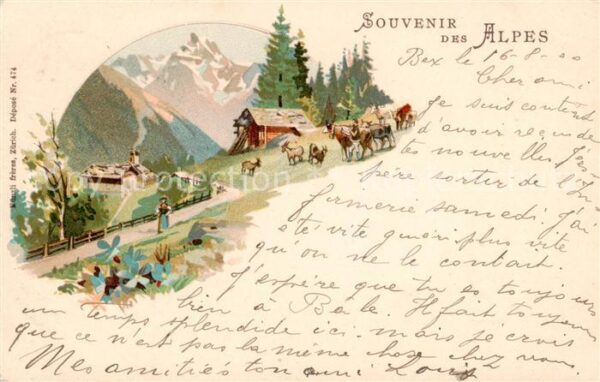 SOUVENIR
DES ALPES
Bex le 16-8-00
Cher ami
Je suis content
d'avoir reçu de
tes nouvelles j'es-
père sortir de l'in-
firmerie samedi. J'ai
été vite guéri plus vite
qu'on ne le contait.
J'espère que tu es toujours
bien à Bale. Il fait toujours
un temps splendide ici mais je crois
que ce n'est pas la même chose chez vous.
Mes amitiés ton ami Louis
frères, Zürich. Déposé Nr. 474